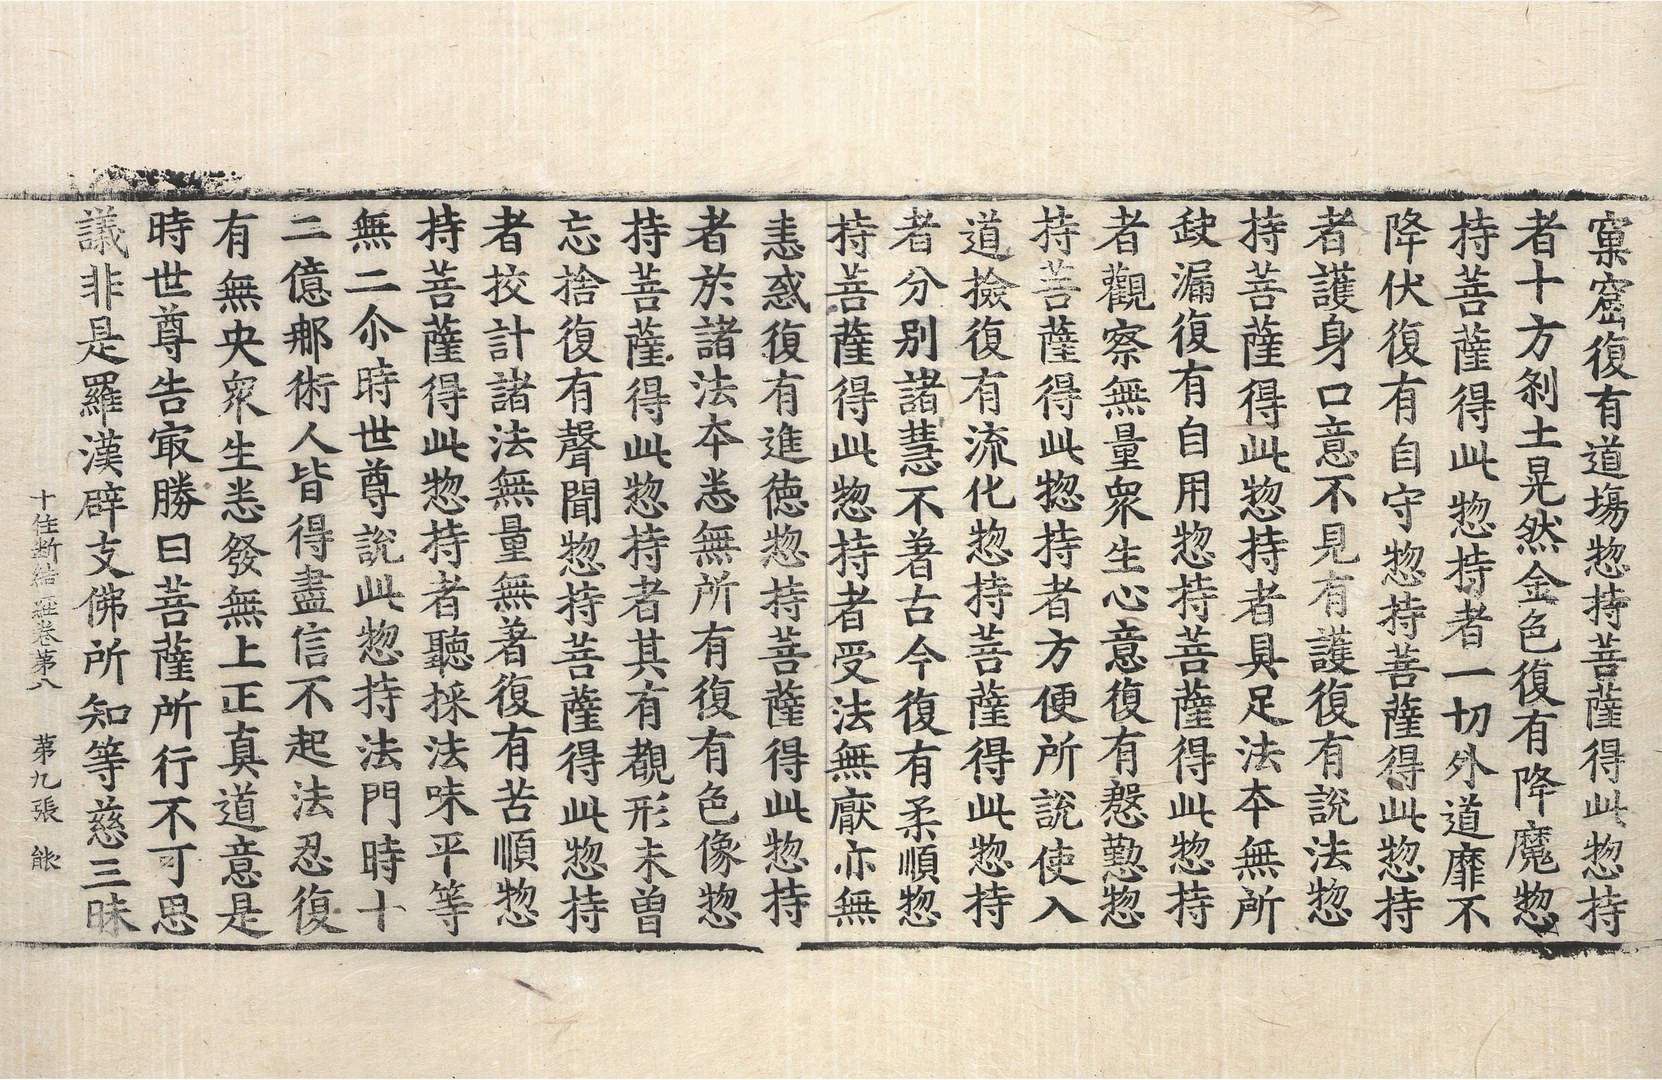 窠窟復有道塲惣持菩薩得此惣持
者十方刹土晃然金色復有降魔惣
持菩薩得此惣持者一切外道靡不
降伏復有自守惣持菩薩得此惣持
者護身口意不見有護復有說法惣
持菩薩得此惣持者具足法本無所
缺漏復有自用惣持菩薩得此惣持
者觀察無量衆生心意復有慇懃惣
持菩薩得此惣持者方便所說使入
道撿復有流化惣持菩薩得此惣持
者分別諸慧不著古今復有柔順惣
持菩薩得此惣持者受法無厭亦無
恚惑復有進德惣持菩薩得此惣持
者於諸法本悉無所有復有色像惣
持菩薩得此惣持者其有覩形未曾
忘捨復有聲聞惣持菩薩得此惣持
者挍計諸法無量無著復有苦順惣
持菩薩得此惣持者聽採法味平等
無二尒時世尊說此惣持法門時十
二億那術人皆得盡信不起法忍復
有無央衆生悉發無上正真道意是
時世尊告㝡勝曰菩薩所行不可思
議非是羅漢辟支佛所知等慈三昧
十住斷結經卷第八　第九張　能